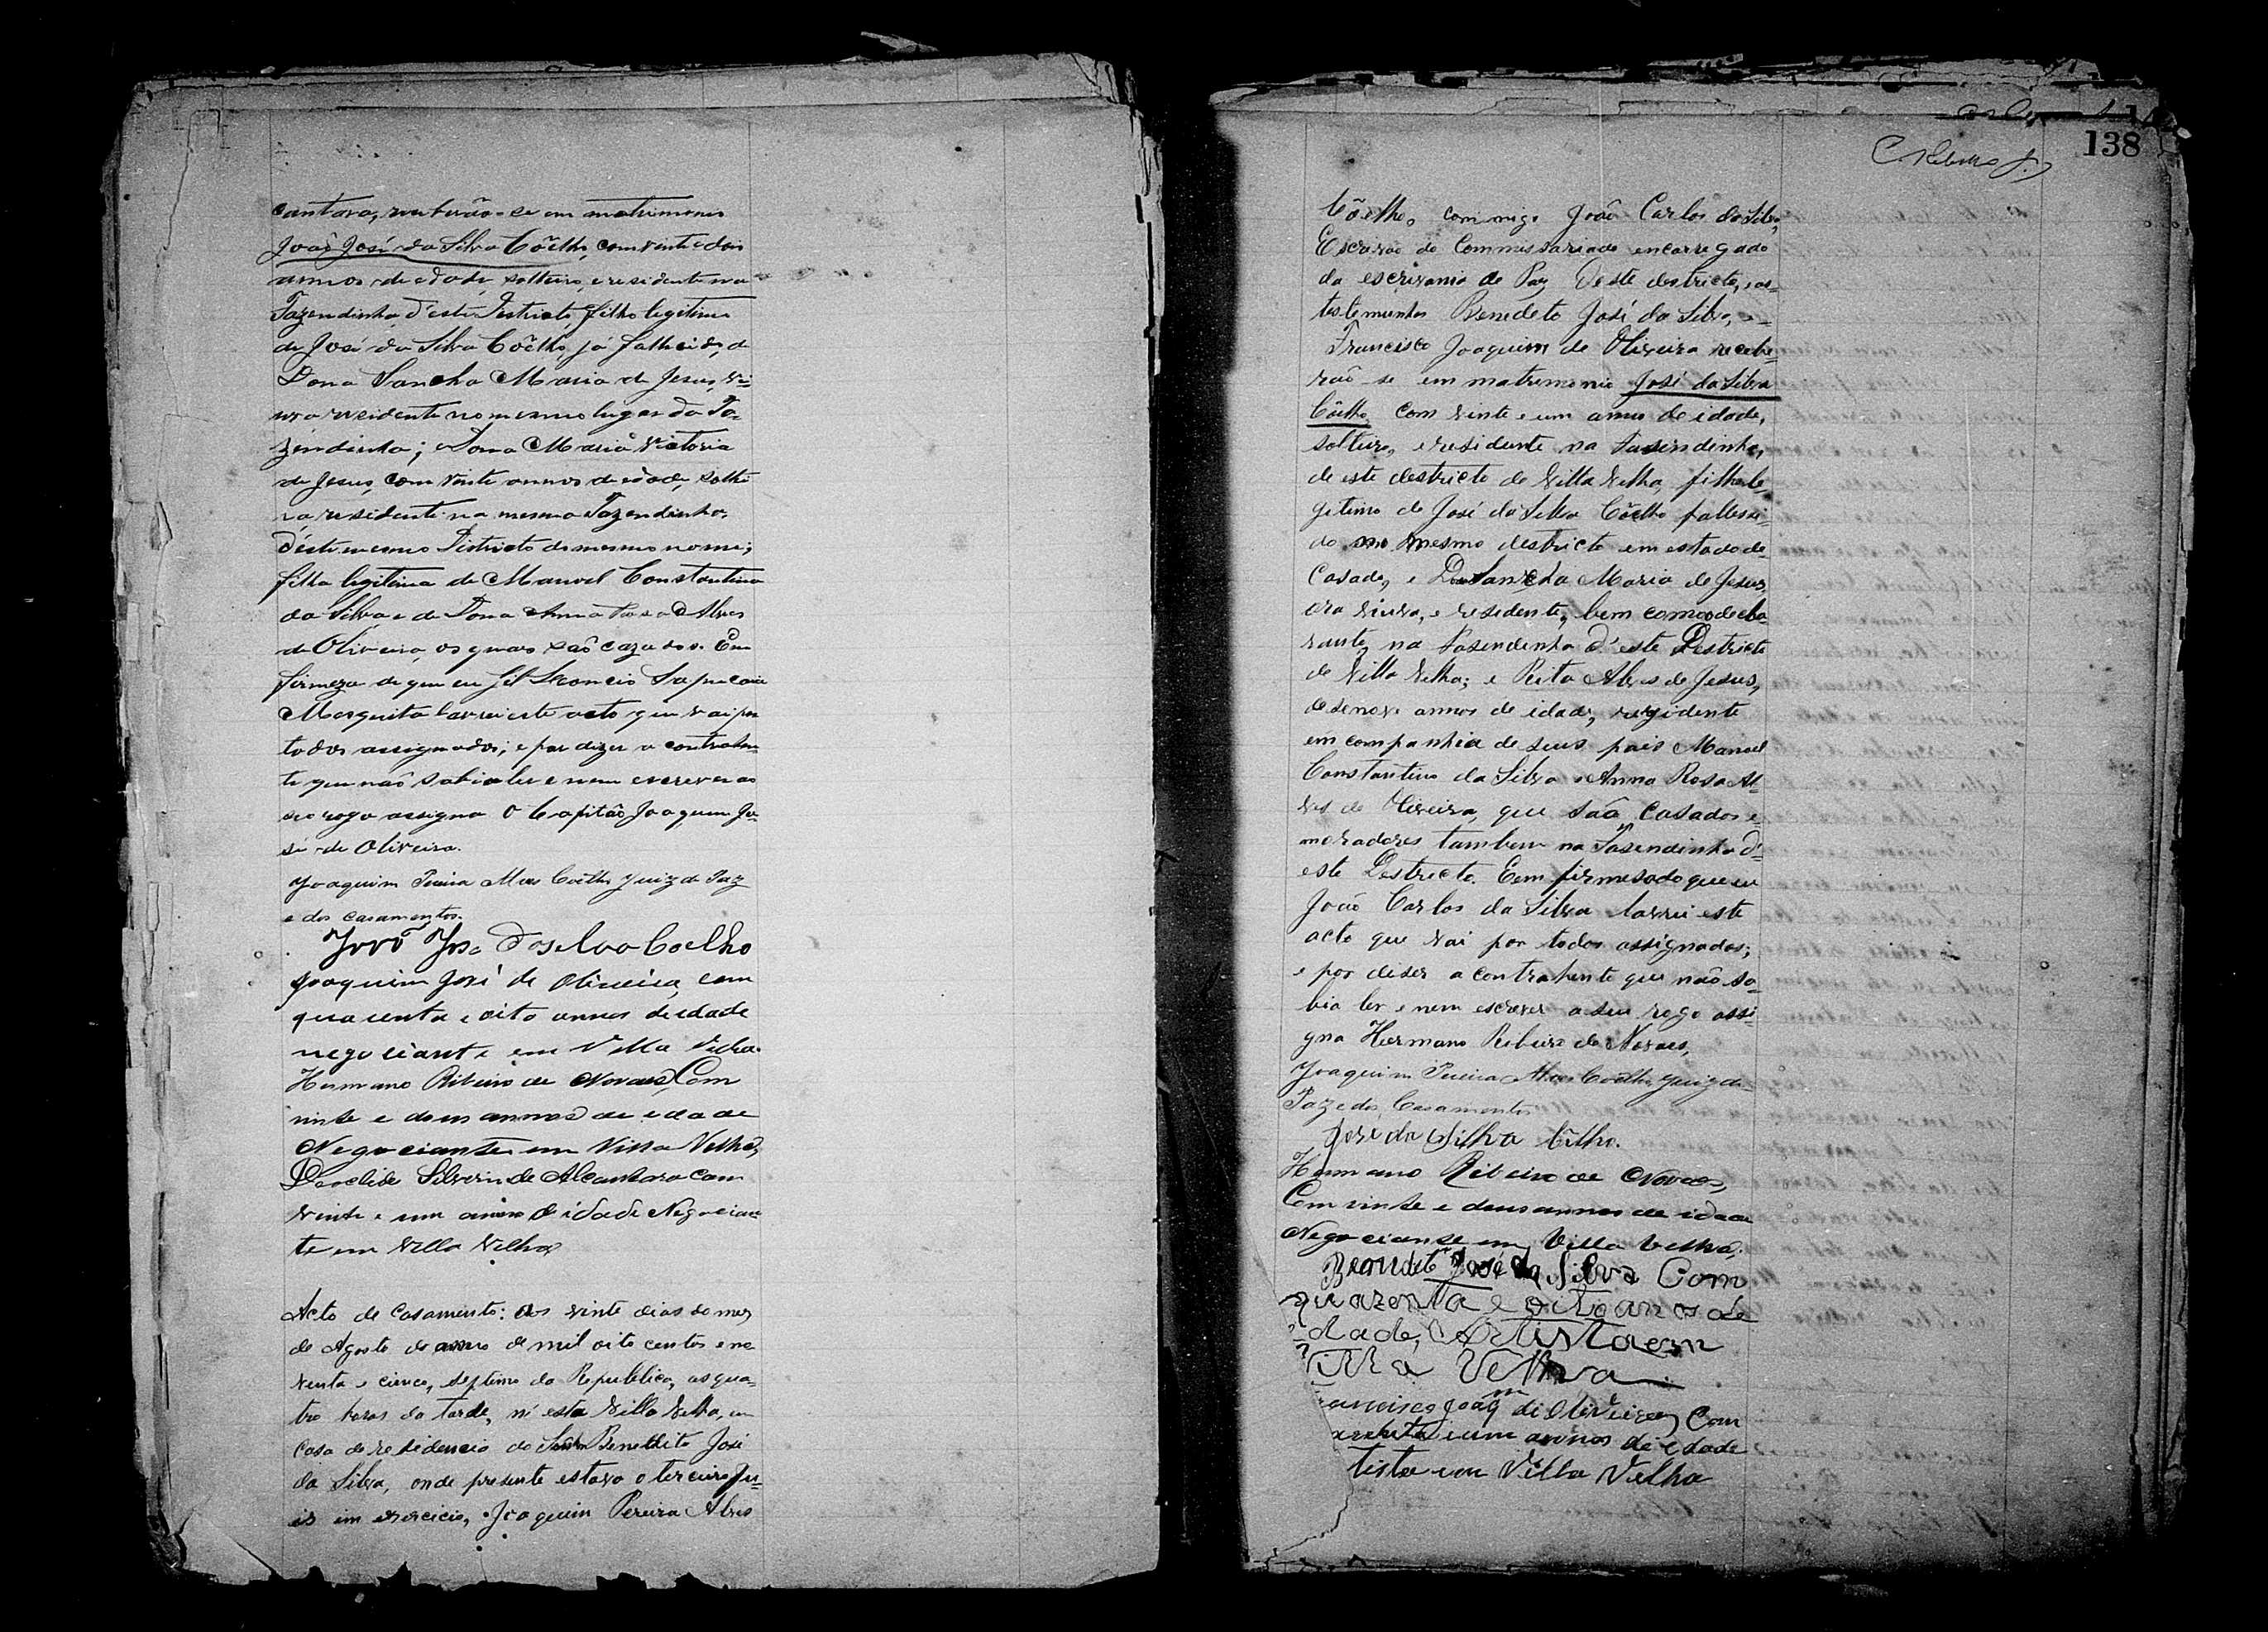 cantara, receberão-se em matrimonio
João José da Silva Côelho, com vinte e dois
annos de edade, solteiro, e residente na
Fazendinha, d'este Districto, filho legitimo
de José da Silva Côelho, já fallecido, de
Dona Sancha Maria de Jesus, vi-
uva residente no mesmo lugar da Fa-
zendinha; Dona Maria Victoria
de Jesus, com vinte annos de edade, soltei
ra residente na mesma Fazendinha,
d'este mesmo Districto do mesmo nome;
filha legitima de Manoel Constantino
da Silva e de Dona Anna Rosa Alves
de Oliveira, os quaes são cazados. Em
firmeza do que eu Gil Leoncio Sapucaia
Mesquita lavrei este acto que vai por
todos assignados; e por dizer a contrahen
te que não sabia ler e nem escrever ao
seo rogo assigna o Capitão Joaquim Jo-
sé de Oliveira.
Joaquim Pereira Alves Coelho Juiz de Paz
e dos casamentos.
João José da Silva Coelho
Joaquim José de Oliveira, com
quarenta e oito annos de idade
negociante em Villa Velha.
Hermano Ribeiro de Novaes, Com
vinte e dous annos de idade
Negociante em Villa Velha,
Silverio de Alcantara com
vinte e um annos de idade Negocian
te em Villa Velha
Acto de Casamento: Aos vinte dias do mez
de Agosto do anno de mil oito centos e no
venta e cinco, septimo da Republica, as qua-
tro horas da tarde, n'esta Villa Velha, em
casa de residencia do Senhor Benedito José
da Silva, onde presente estava o terceiro Ju-
is em exercicio, Joaquim Pereira Alves
138
Côelho, commigo João Carlos da Silva,
Escrivão do Commissariado encarregado
da escrivania de Paz deste destricto, e as
testemunhas Benedeto José da Silva, e
Francisco Joaquim de Oliveira recebe-
rão-se em matrimonio José da Silva
Côelho, com vinte e um annos de idade,
solteiro, e residente na Fasendinha,
de este destricto de Villa Velha, filho le-
getimo de José da Silva Côelho fallesi-
do no mesmo destricto em estado de
Casado, e Dona Sancha Maria de Jesus,
ora viuva, e residente, bem como o decla-
rante, na Fasendinha d'este Destricto
de Villa Velha; e Rita Alves de Jesus,
desenove annos de idade, rezidente
em companhia de seus pais Manoel
Constantino da Silva e Anna Rosa Al-
ves de Oliveira, que são Casados e
moradores tambem na Fasendinha d'
este Destricto. E em firmesa do que eu
João Carlos da Silva lavrei este
acto que vai por todos assignados;
e por diser a contrahente que não sa-
bia ler e nem escrever a seu rogo assi-
gna Hermano Ribeiro de Novaes,
Joaquim Pereira Alves Coelho Juiz de
Paz e dos Casamentos
José da Silva Côelho.
Hermano Ribeiro de Novaes,
Com vinte e dous annos de idade
Negociante em Villa Velha,
Benedito José da Silva Com
quazenta e oito anos de
idade, Artista em
Villa Velha
rancisco Joaqm de Oliveira, Com
e um annos de idade
tista em Villa Velha